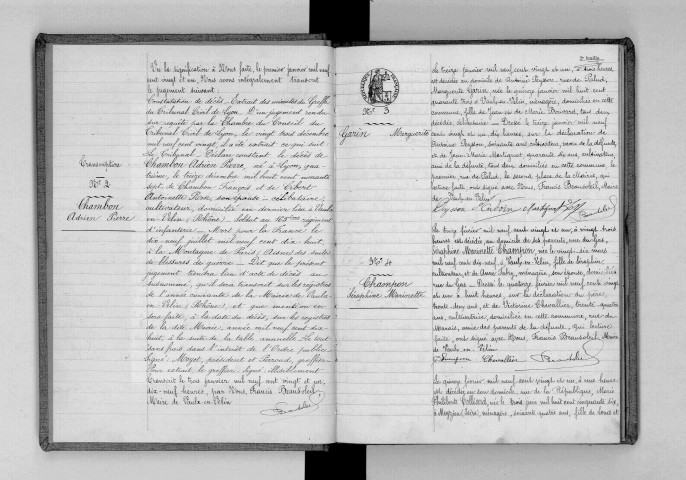 Vu la signification à Nous faite, le premier janvier mil neuf
cent vingt et un, Nous avons intégralement transcrit
le jugement suivant :
Constatation de décès. Extrait des minutes du Greffe
du Tribunal Civil de Lyon. D'un jugement rendu
sur requête par la Chambre du Conseil du
Tribunal Civil de Lyon, le vingt trois décembre
mil neuf cent vingt, a été extrait ce qui suit :
Le Tribunal, Déclare constant le décès de
Chambon Adrien Pierre, né à Lyon,
le treize décembre mil huit cent nonante
sept, de Chambon François et de
Antoinette son épouse - célibataire
cultivateur, domicilié en dernier lieu à Vaulx-
en-Velin (Rhône) - Soldat au 165ème régiment
d'infanterie - Mort pour la France le
dix-neuf juillet mil neuf cent dix huit,
à la Montagne de Paris, Aisne, des suites
de blessures de guerre - Dit que le présent
jugement tiendra lieu d'acte de décès au
susnommé, qu'il sera transcrit sur les registres
de l'année courante de la Mairie de Vaulx-
en-Velin (Rhône) et que mention en
sera faite, à la date du décès, sur les registres
de la dite Mairie, année mil neuf cent dix-
huit, à la suite de la table annuelle. Le tout
sans frais dans l'intérêt de l'Ordre public
Signé : président et greffier.
Pour extrait le greffier. signé : Illisiblement
Transcrit le trois janvier mil neuf cent vingt et un,
dix-neuf heures, par Nous, Francis Beausoleil,
Maire de Vaulx-en-Velin
Transcription
N° 2
Chambon
Adrien Pierre
2e feuillet
N° 3
Garin Marguerite
Le treize janvier mil neuf cent vingt et un, à heures
est décédée au domicile de Antoine Peysson rue de
Marguerite Garin, née le quinze janvier mil huit cent
quarante trois à Vaulx-en-Velin, ménagère, domiciliée en cette
commune, fille de Jean et de Marie tous deux
décédés, célibataire - Dressé le treize janvier mil neuf
cent vingt et un, dix heures, sur la déclaration de
Antoine Peysson, soixante ans, cultivateur, de la défunte,
et de Jean-Marie quarante ans, cultivateur,
ami de la défunte, tous deux domiciliés en cette commune, le
premier rue de le second, place de la Mairie, qui
lecture faite, ont signé avec Nous, Francis Beausoleil, Maire
de Vaulx-en-Velin
N° 4
Champon
Séraphine Marinette
Le treize février mil neuf cent vingt et un, à vingt trois
heures est décédée au domicile de ses parents, rue
Séraphine Marinette Champon, née le vingt mars
mil neuf cent dix neuf, à Vaulx-en-Velin, fille de Séraphin
cultivateur, et de Anne ménagère, son épouse, domiciliés
rue - Dressé le quatorze février mil neuf cent vingt
et un à huit heures, sur la déclaration du père
trente ans, et de Victorine Chevallier, trente quatre
ans, cultivatrice, domiciliée en cette commune, rue du
Marais, amie des parents de la défunte, qui lecture
faite, ont signé avec Nous, Francis Beausoleil, Maire
de Vaulx-en-Velin
Champon Chevallier
Le quinze février mil neuf cent vingt et un, à une heure
est décédée en son domicile, rue de la République, Marie
Philiberte née le trois juin mil huit cent cinquante six,
à Meyzieu (Isère), ménagère, soixante quatre ans, fille de et